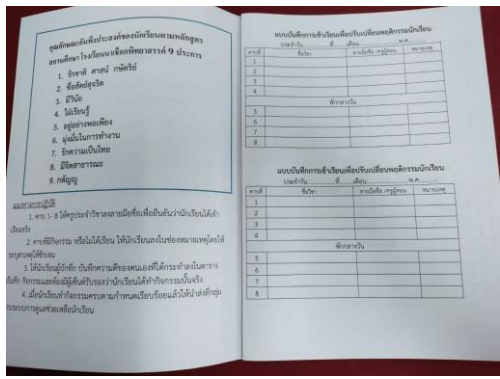 คุณลักษณะอันพึงประสงค์ของนักเรียนตามหลักสูตร
สถานศึกษา โรงเรียนนาเชือกพิทยาสรรค์ 9 ประการ
1. รักชาติ ศาสน์ กษัตริย์
2. ซื่อสัตย์สุจริต
3. มีวินัย
4. ใฝ่เรียนรู้
5. อยู่อย่างพอเพียง
6. มุ่งมั่นในการทำงาน
7. รักความเป็นไทย
8. มีจิตสาธารณะ
9. กตัญญู
แนวทางการปฏิบัติ
1. คาบ 1- 8 ให้ครูประจำวิชาลงลายมือชื่อเพื่อยืนยันว่านักเรียนได้เข้า
เรียนจริง
2. คาบที่มีกิจกรรม หรือไม่ได้เรียน ให้นักเรียนลงในช่องหมายเหตุโดยให้
ระบุสาเหตุให้ชัดเจน
3. ให้นักเรียนผู้บันทึก บันทึกความดีของตนเองที่ได้กระทำลงในตาราง
บันทึก กิจกรรมและต้องมีผู้เซ็นต์รับรองว่านักเรียนได้ทำกิจกรรมนั้นจริง
4. เมื่อนักเรียนทำกิจกรรมครบตามกำหนดเรียบร้อยแล้วให้นำส่งที่กลุ่ม
งานระบบการดูแลช่วยเหลือนักเรียน
แบบบันทึกการเข้าเรียนเพื่อปรับเปลี่ยนพฤติกรรมนักเรียน
ประจำวัน............ที่......เดือน....................พ.ศ............
คาบที่ ชื่อวิชา ลายมือชื่อ /ครูผู้สอน หมายเหตุ
1
2
3
4
พักกลางวัน
5
6
7
8
แบบบันทึกการเข้าเรียนเพื่อปรับเปลี่ยนพฤติกรรมนักเรียน
ประจำวัน............ที่......เดือน....................พ.ศ............
คาบที่ ชื่อวิชา ลายมือชื่อ /ครูผู้สอน หมายเหตุ
1
2
3
4
พักกลางวัน
5
6
7
8